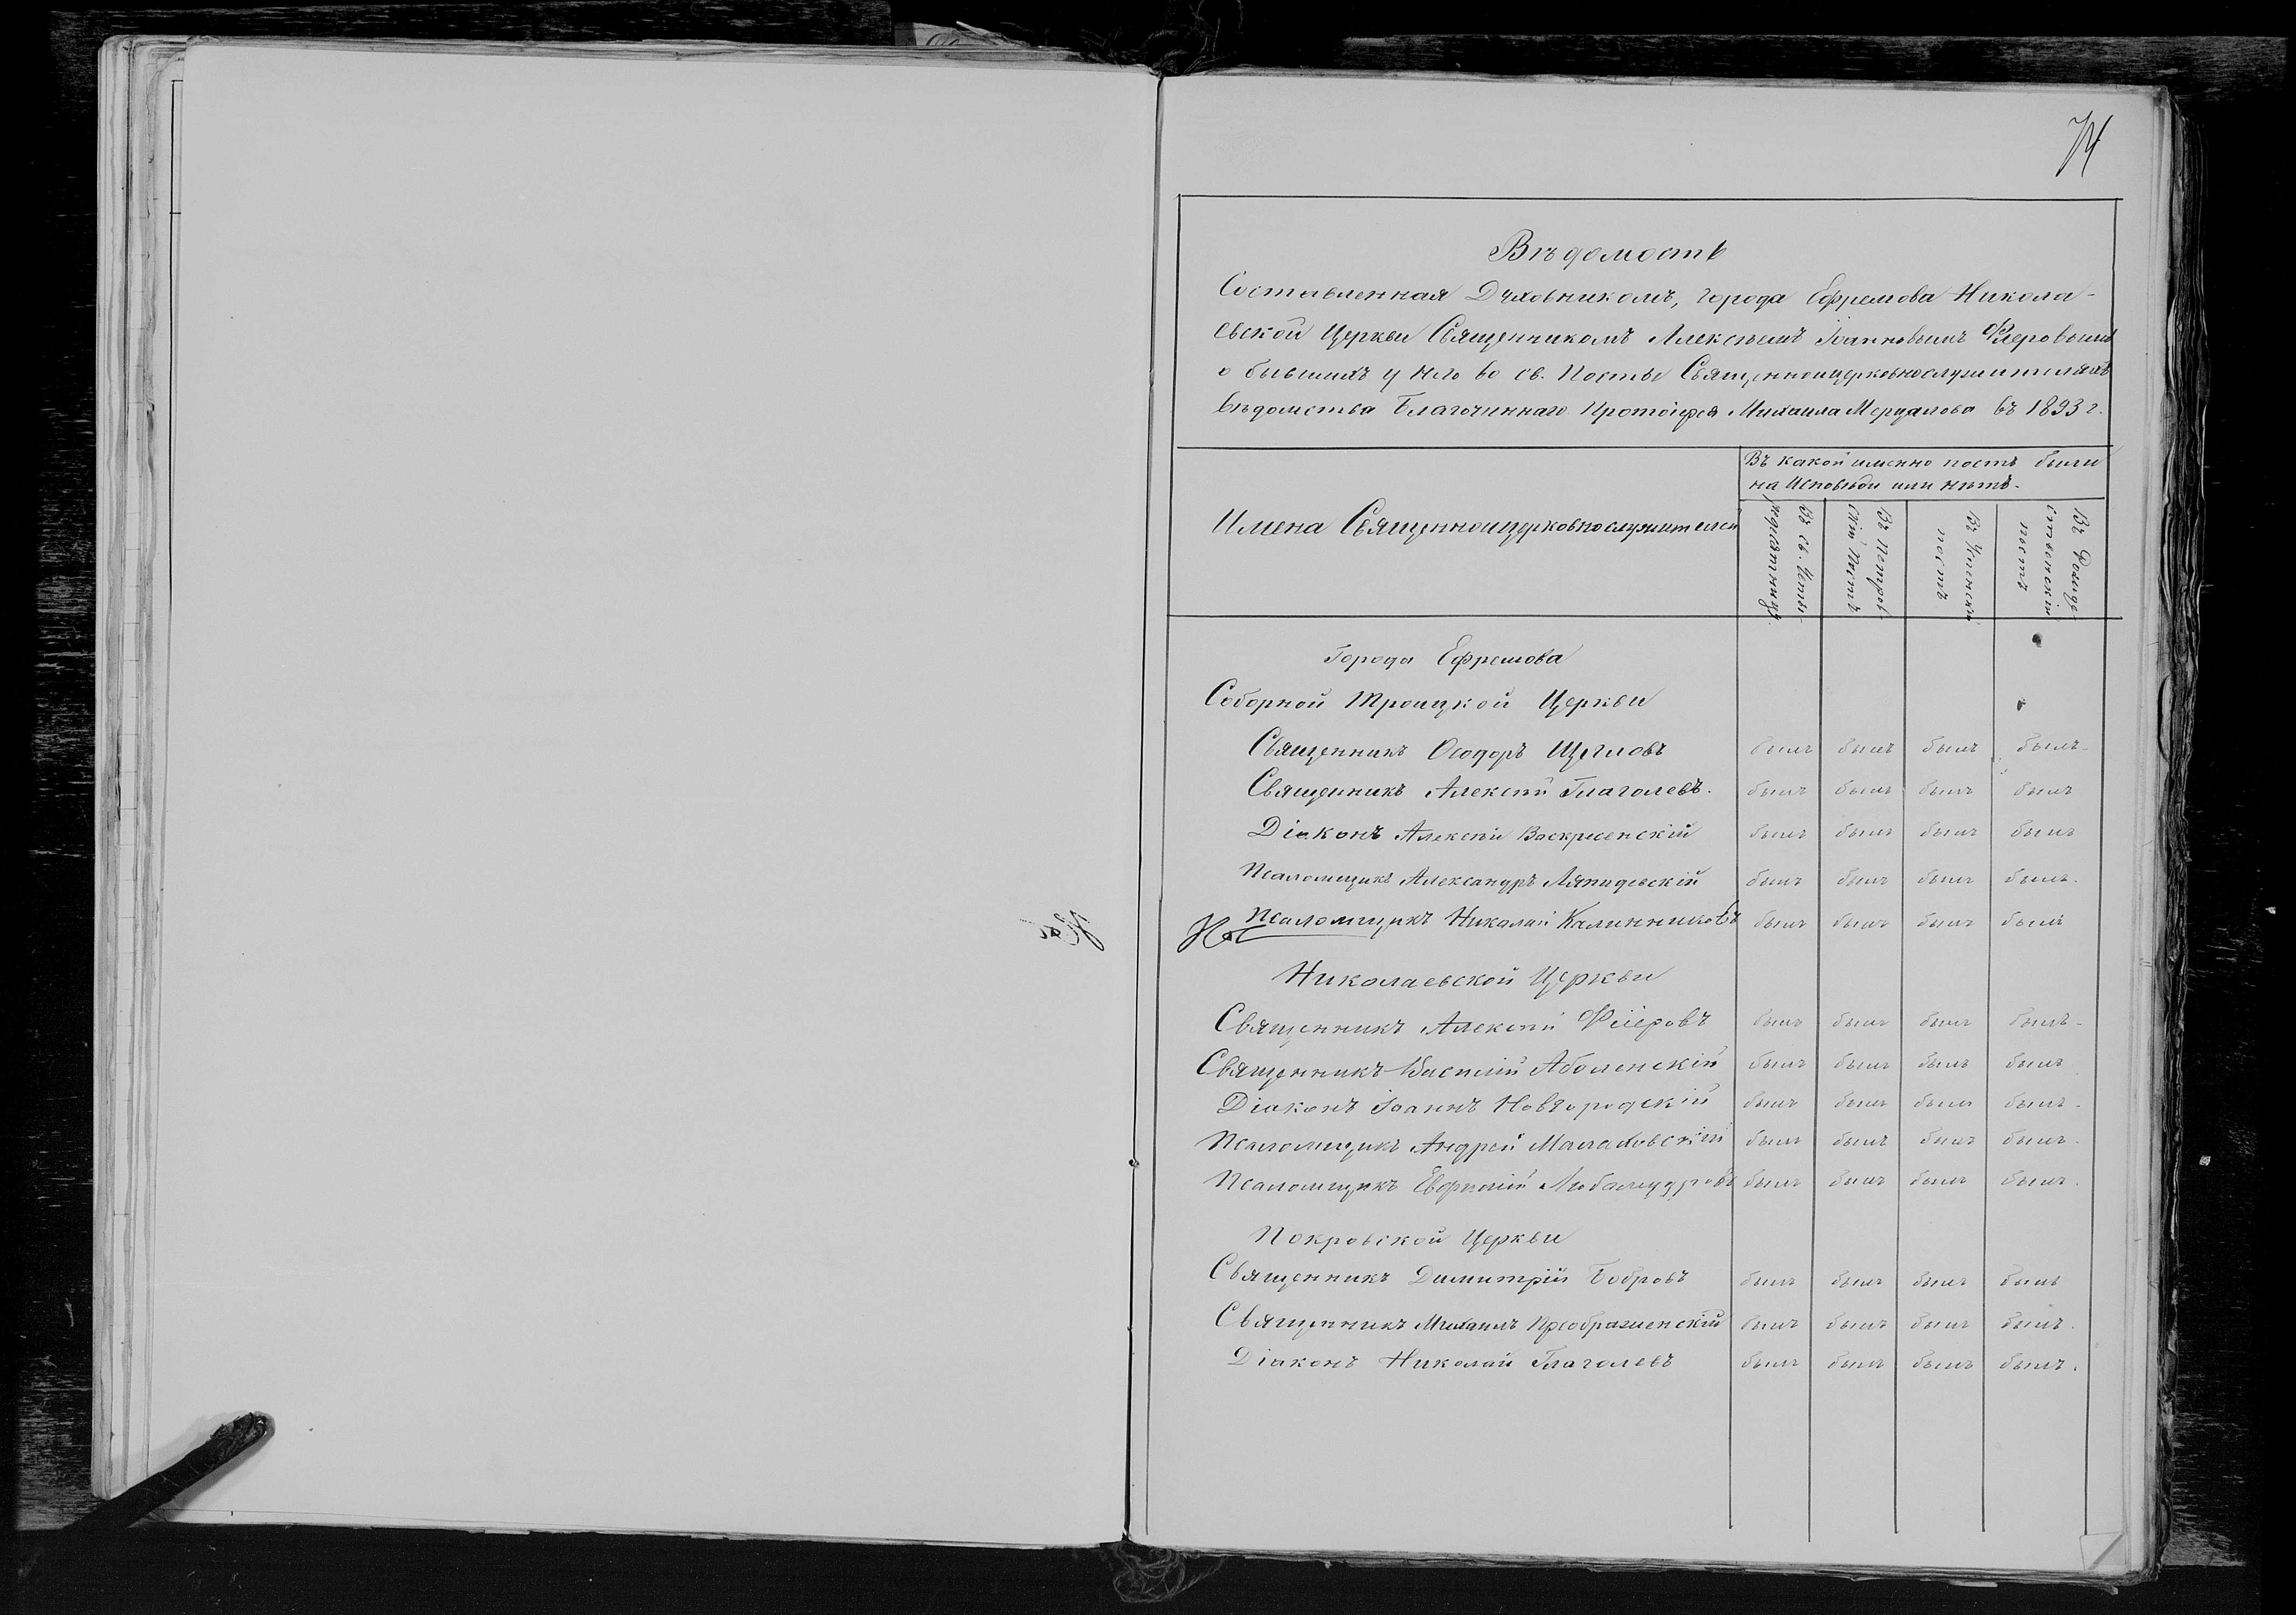 74
Вѣдомость
Составленная Духовникомъ, города Ефремова Никола-
евской Церкви Священникомъ Алексѣемъ Іоанновымъ Фіеровымъ
о бывшихъ у него во св. Посты Священноцерковнослужителяхъ
вѣдомства Благочиннаго Протоіерея Михаила Мерцалова въ 1893 г.
Имена Священноцерковнослужителей
Въ какой именно постъ были
на Исповѣди или нѣтъ.
Въ св. Четы-
редесятницу
Въ Петров-
скій Постъ
Въ Успенскій
постъ
Въ Рожде-
ственскій
постъ
Города Ефремова
Соборной Троицкой Церкви
Священникъ Ѳеодоръ Щегловъ былъ былъ былъ былъ
Священникъ Алексѣй Глаголевъ. былъ былъ былъ былъ
Діаконъ Алексѣй Воскресенскій былъ былъ былъ былъ
Псаломщикъ Александръ Ляпидевскій былъ былъ былъ былъ.
Псаломщикъ Николай Калинниковъ былъ былъ былъ былъ
Николаевской Церкви
Священникъ Алексѣй Фіеровъ былъ былъ былъ былъ
Священникъ Василій Аболенскій былъ былъ былъ былъ
Діаконъ Іоаннъ Новгородскій былъ былъ былъ былъ
Псаломщикъ Андрей Малаховскій былъ былъ былъ былъ.
Псаломщикъ Евфимій Любомудровъ былъ былъ былъ былъ.
Покровской Церкви
Священникъ Димитрій Бобровъ былъ былъ былъ былъ
Священникъ Михаилъ Преображенскій былъ былъ былъ былъ.
Діаконъ Николай Глаголевъ былъ былъ былъ былъ.